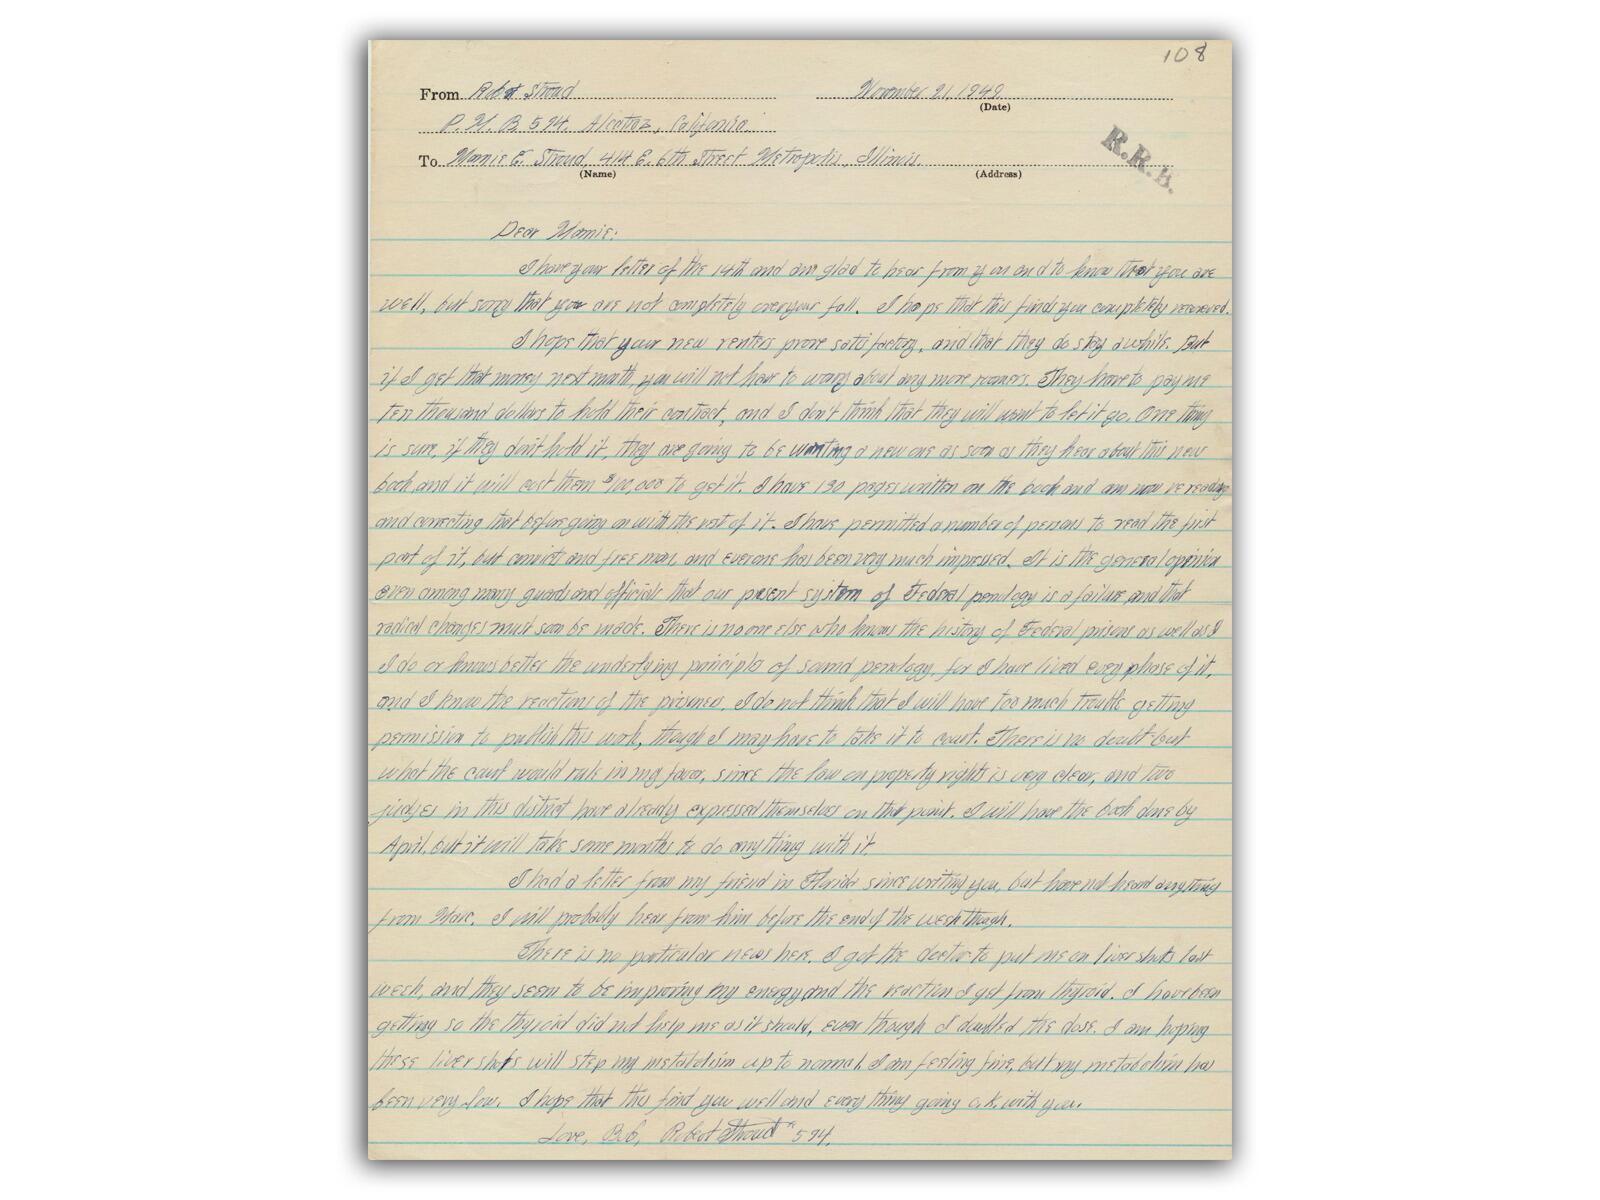 108
From Robert Stroud November 21, 1949
(Date)
P. M. B. 594. Alcatraz, California.
To Mamie E. Stroud, 414 E. 6th Street Metropolis, Illinois.
(Name) (Address)
R.R.B.
Dear Mamie:
I have your letter of the 14th and am glad to hear from you and to know that you are
well, but sorry that you are not completely over your fall. I hope that this finds you completely recovered.
I hope that your new renters prove satisfactory, and that they do stay a while. But
if I get that money next month, you will not have to worry about any more roomers. They have to pay me
ten thousand dollars to hold their contract, and I don't think that they will want to let it go. One thing
is sure, if they don't hold it, they are going to be wanting a new one as soon as they hear about this new
book, and it will cost them $100,000 to get it. I have 130 pages written on the book and am now rereading
and correcting that before going on with the rest of it. I have permitted a number of persons to read the first
part of it, but convicts and free men, and everone has been very much impressed. It is the general opinion
even among many guards and officials that our present system of Federal penology is a failure and that
radical changes must soon be made. There is no one else who knows the history of Federal prisons as well as I
I do or knows better the underlying principls of sound penology, for I have lived every phase of it,
and I know the reactions of the prisoners. I do not think that I will have too much trouble getting
permission to publish this work, though I may have to take it to court. There is no doubt but
what the court would rule in my favor, since the law on property rights is very clear, and two
judges in this district have already expressed themselves on that point. I will have the book done by
April, but it will take some months to do anything with it.
I had a letter from my friend in Florida since writing you, but have not heard anything
from Marc. I will probably hear from him before the end of the week though.
There is no particular news here. I got the doctor to put me on liver shots last
week, and they seem to be improving my energy and the reaction I get from thyroid. I have been
getting so the thyroid did not help me as it should, even though I doubled the dose. I am hoping
these liver shots will step my metabolism up to normal. I am feeling fine, but my metabolism has
been very low. I hope that this find you well and every thing going o.k. with you.
Love, Bob, Robert Stroud #594.